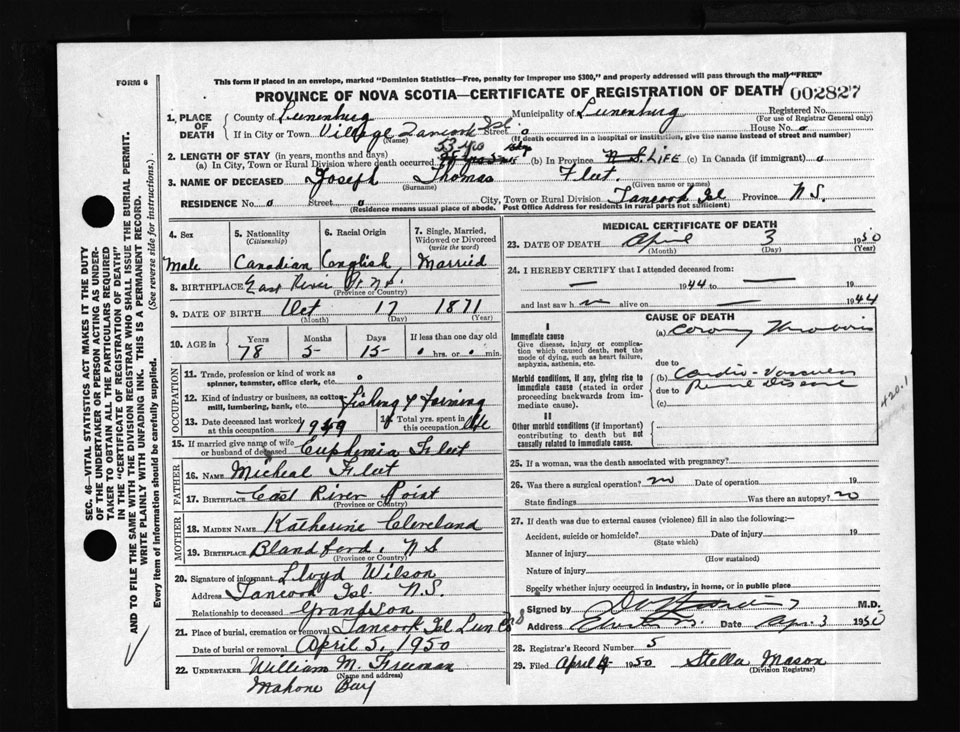 This form if placed in an envelope, marked "Dominion Statistics—Free, penalty for improper use $300," and properly addressed will pass through the mail "FREE"
FORM 6
PROVINCE OF NOVA SCOTIA—CERTIFICATE OF REGISTRATION OF DEATH
002827
1. PLACE OF DEATH { County of Lunenburg Municipality of Lunenburg Registered No.
(For use of Registrar General only)
If in City or Town Village Tancook Isl. Street o House No. o
(Name) (If death occurred in a hospital or institution, give the name instead of street and number)
53 yrs
2. LENGTH OF STAY (in years, months and days)
(a) In City, Town or Rural Division where death occurred (b) In Province N.S. LIFE (c) In Canada (if immigrant) o
3. NAME OF DECEASED Joseph Thomas Fleet.
(Surname) (Given name or names)
RESIDENCE No. o Street o City, Town or Rural Division Tancook Isl Province N.S.
(Residence means usual place of abode. Post Office Address for residents in rural parts not sufficient)
4. Sex
Male
5. Nationality
(Citizenship)
Canadian
6. Racial Origin
English
7. Single, Married, Widowed or Divorced
(write the word)
Married
8. BIRTHPLACE East River Pt. N.S.
(Province or Country)
9. DATE OF BIRTH Oct 17 1871
(Month) (Day) (Year)
10. AGE in Years Months Days If less than one day old
78 5 15 o hrs. or o min.
OCCUPATION
11. Trade, profession or kind of work as spinner, teamster, office clerk, etc. o
12. Kind of industry or business, as cotton mill, lumbering, bank, etc. Fishing & Farming
13. Date deceased last worked at this occupation 1949
14. Total yrs. spent in this occupation Life
15. If married give name of wife or husband of deceased Euphemia Fleet
FATHER
16. NAME Micheal Fleet
17. BIRTHPLACE East River Point
(Province or Country)
MOTHER
18. MAIDEN NAME Katherine Cleveland
19. BIRTHPLACE Blandford, N S
(Province or Country)
20. Signature of informant Lloyd Wilson
Address Tancook Isl. N.S.
Relationship to deceased Grandson
21. Place of burial, cremation or removal Tancook Isl Lun Co N S
Date of burial or removal April 5, 1950
22. UNDERTAKER William M. Freeman
(Name and address)
Mahone Bay
MEDICAL CERTIFICATE OF DEATH
23. DATE OF DEATH April 3 1950
(Month) (Day) (Year)
24. I HEREBY CERTIFY that I attended deceased from:
— 1944 to — 19
and last saw h alive on — 1944
CAUSE OF DEATH
I
Immediate cause
Give disease, injury or complication which caused death, not the mode of dying, such as heart failure, asphyxia, asthenia, etc.
(a) Coronary Thrombosis
due to
Morbid conditions, if any, giving rise to immediate cause (stated in order proceeding backwards from immediate cause).
(b) Cardio-Vascular
due to Renal Disease
(c)
420.1
II
Other morbid conditions (if important) contributing to death but not causally related to immediate cause.
25. If a woman, was the death associated with pregnancy?
26. Was there a surgical operation? no Date of operation 19
State findings Was there an autopsy? no
27. If death was due to external causes (violence) fill in also the following:—
Accident, suicide or homicide? Date of injury 19
(State which)
Manner of injury
(How sustained)
Nature of injury
Specify whether injury occurred in industry, in home, or in public place
Signed by M.D.
Address Date Apr. 3 1950
28. Registrar's Record Number 5
29. Filed April 4 1950 Stella Mason
(Division Registrar)
SEC. 46—VITAL STATISTICS ACT MAKES IT THE DUTY
OF THE UNDERTAKER OR PERSON ACTING AS UNDERTAKER TO OBTAIN ALL THE PARTICULARS REQUIRED
IN THE "CERTIFICATE OF REGISTRATION OF DEATH"
AND TO FILE THE SAME WITH THE DIVISION REGISTRAR WHO SHALL ISSUE THE BURIAL PERMIT.
WRITE PLAINLY WITH UNFADING INK. THIS IS A PERMANENT RECORD.
Every item of Information should be carefully supplied. (See reverse side for instructions.)